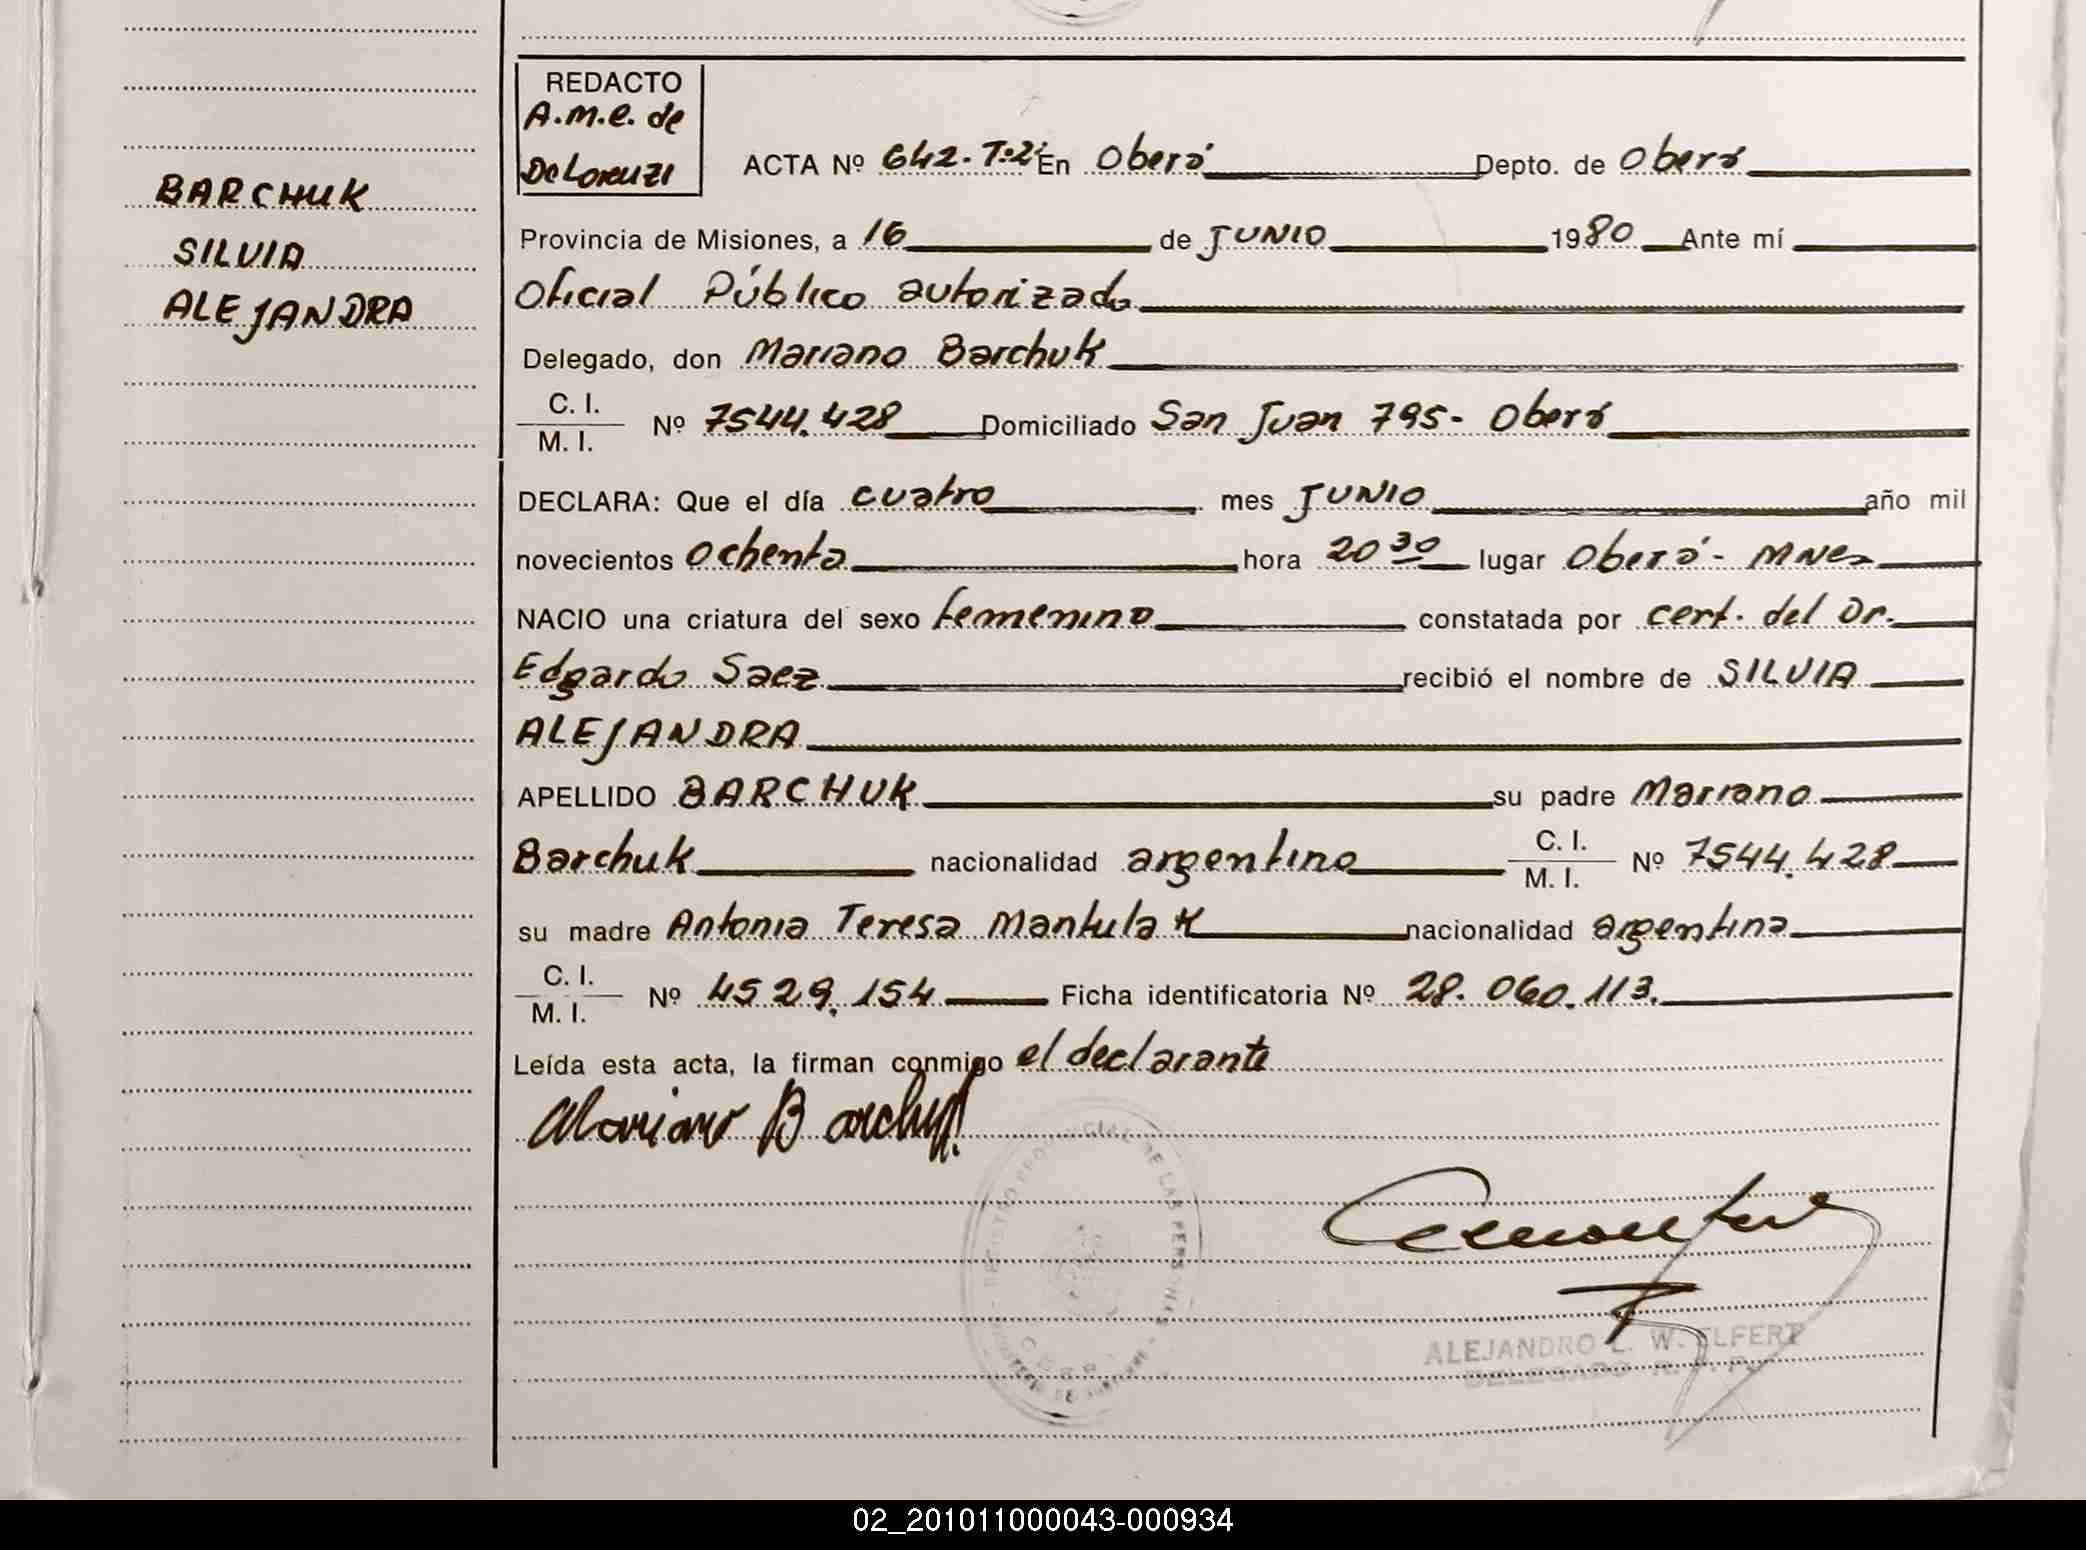 BARCHUK
SILVIA
ALEJANDRA
REDACTO
A.M.E. de
De Lorenzi
ACTA Nº 642. T:2º En Oberá Depto. de Oberá
Provincia de Misiones, a 16 de JUNIO 1980 Ante mí
Oficial Público autorizado
Delegado, don Mariano Barchuk
C. I.
M. I. Nº 7544.428 Domiciliado San Juan 795- Oberá
DECLARA: Que el día cuatro mes JUNIO año mil
novecientos ochenta hora 20 30 lugar Oberá- Mnes
NACIO una criatura del sexo femenino constatada por cert. del Dr.
Edgardo Saez recibió el nombre de SILVIA
ALEJANDRA
APELLIDO BARCHUK su padre Mariano
Barchuk nacionalidad argentino C. I. M. I. Nº 7544.428
su madre Antonia Teresa Mantulak nacionalidad argentina
C. I.
M. I. Nº 4529.154 Ficha identificatoria Nº 28.060.113.
Leída esta acta, la firman conmigo el declarante
Mariano Barchuk
REGISTRO PROVINCIAL DE LAS PERSONAS
ALEJANDRO L. W. ELFERT
DELEGADO R. P. P.
02_201011000043-000934